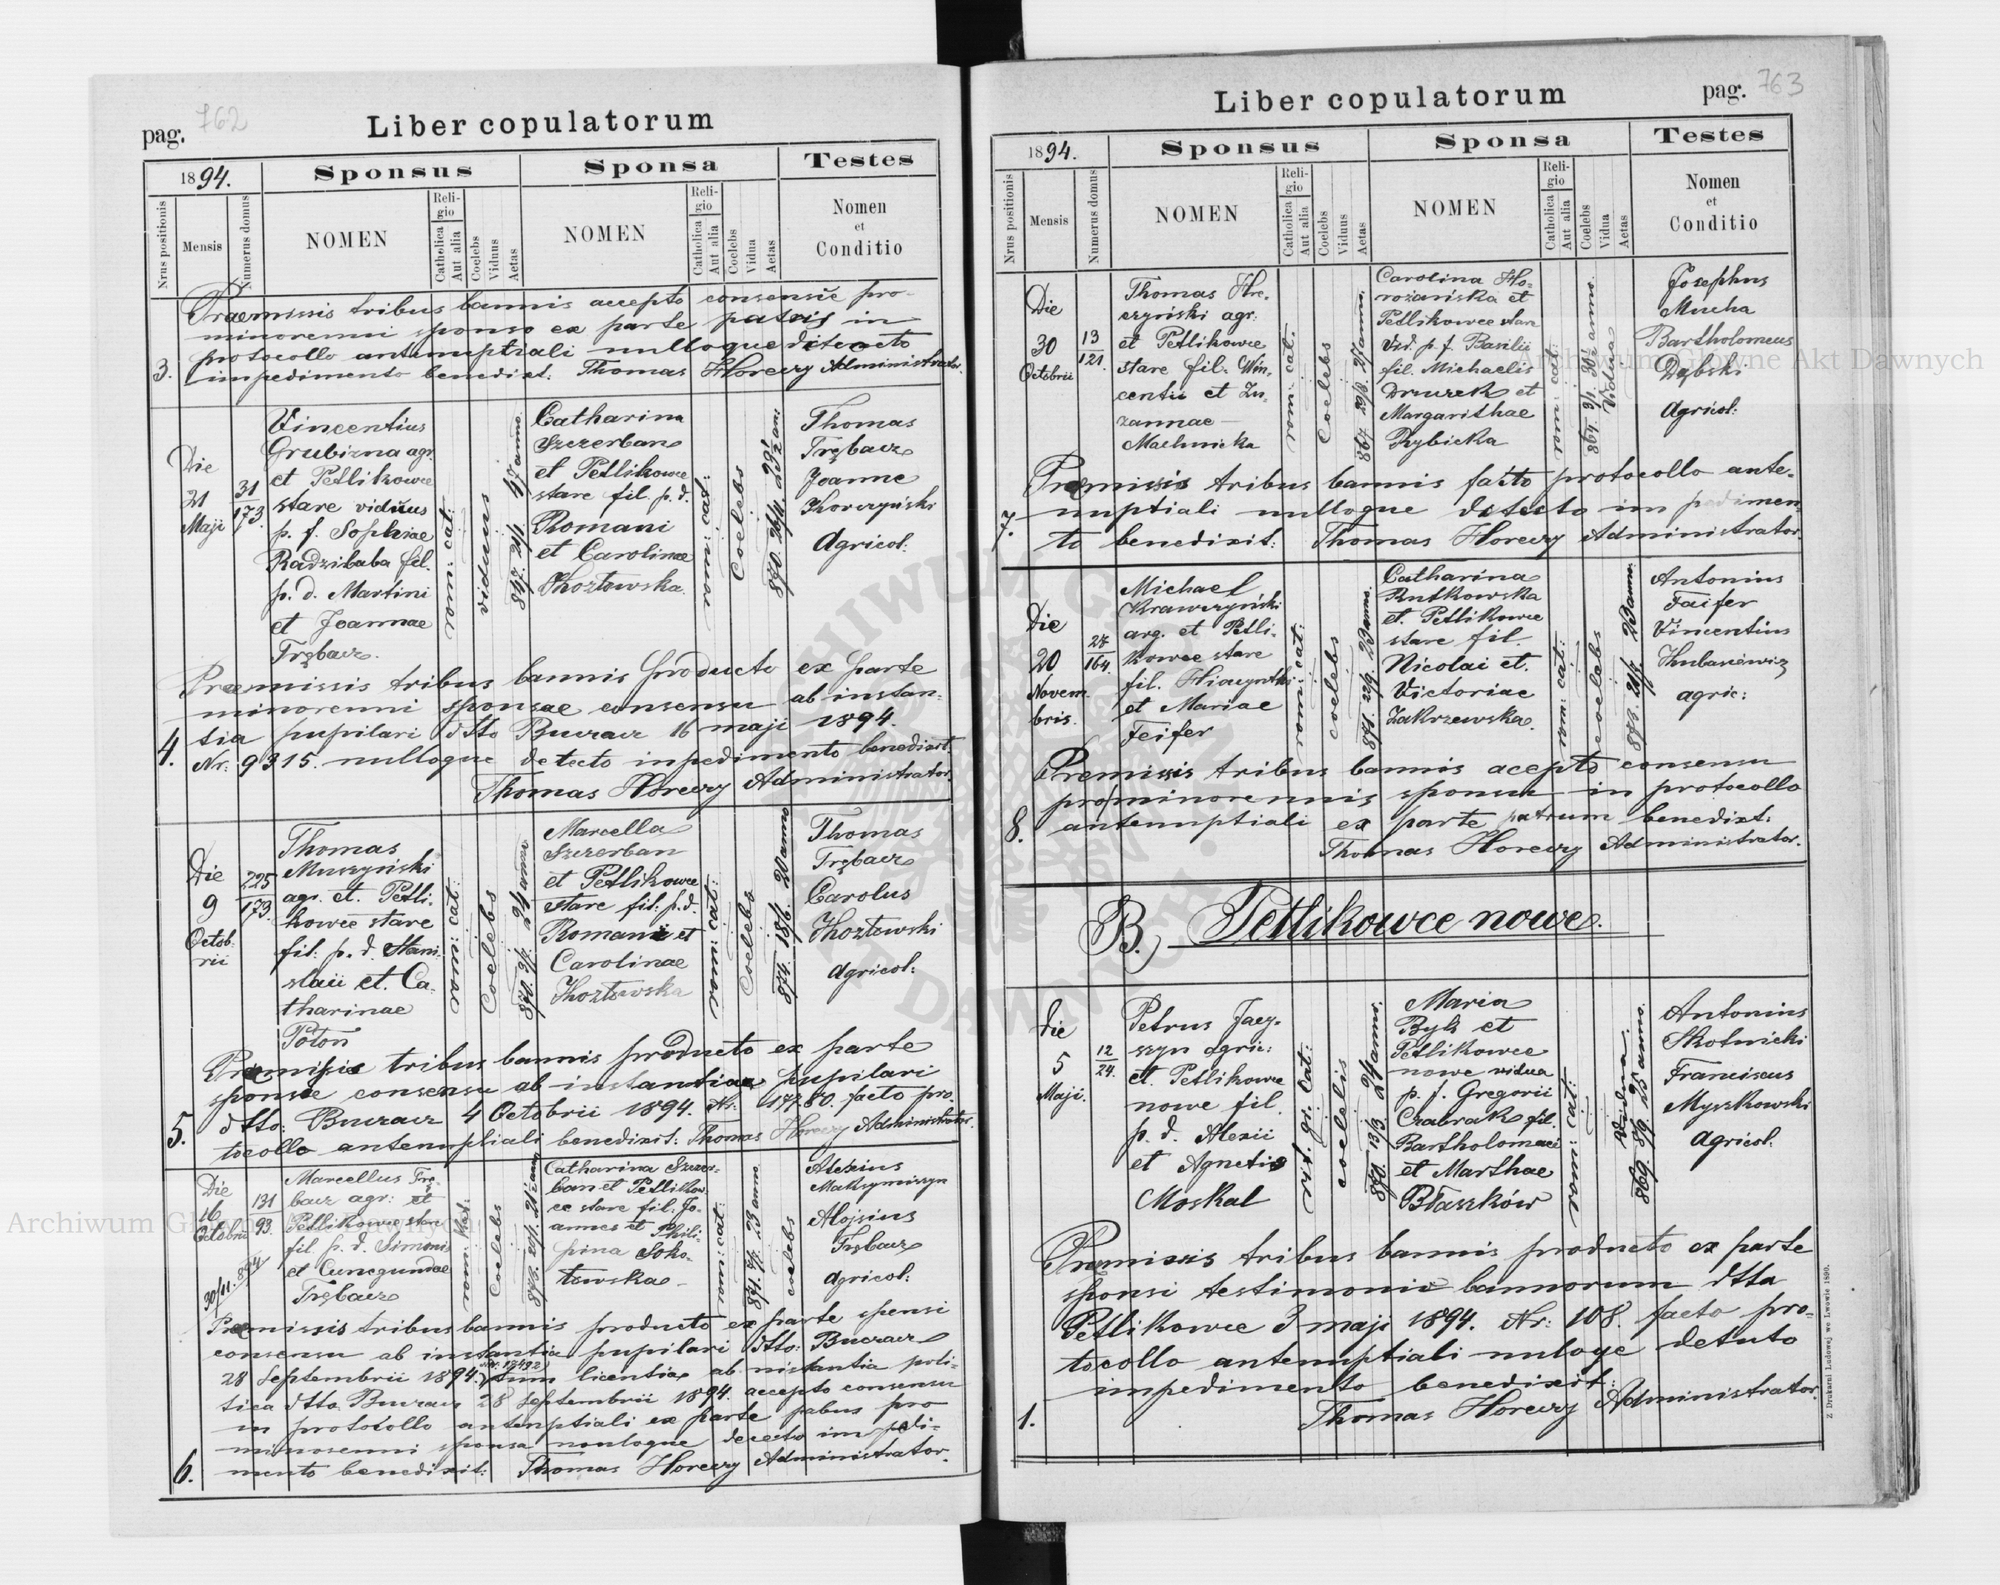 762
pag.
Liber copulatorum
1894.
Sponsus
Sponsa
Testes
Nrus positionis
Mensis
Numerus domus
NOMEN
Religio
Catholica
Aut alia
Coelebs
Viduus
Aetas
NOMEN
Religio
Catholica
Aut alia
Coelebs
Vidua
Aetas
Nomen
et
Conditio
Praemissis tribus bannis accepto consensu pro-
minorenni sponso ex parte patris in
protocollo antenuptiali nulloque detecto
3. impedimento benedixt: Thomas Horeczy Administrator.
Die
31
Maji
31
173
Vincentius
Grubizna agr.
et Petlikowce
stare viduus
p. f. Sophiae
Radzibaba fil.
p. d. Martini
et Joannae
Trębacz.
rom: cat:
viduus
847. 24/1. 47 anno.
Catharina
Szczerban
et Petlikowce
stare fil. p. d.
Romani
et Carolinae
Khoztowska.
rom: cat:
Coelebs
Thomas
Trębacz
Joanne
Agricol:
Praemissis tribus bannis producto ex parte
minorenni sponsae consensu ab instan-
tia pupilari dtto Buczacz 16 maji 1894.
4. Nr: 9315. nulloque detecto inpedimento benedixt
Thomas Horeczy Administrator.
Die
9
Octob-
rii
225
173.
Thomas
Muszyński
agr. et. Petli-
kowce stare
fil. p. d. Stani-
slaii et. Ca-
tharinae
Poton
rom: cat:
Coelebs
Marcella
Szczerban
et Petlikowce
stare fil: p. d.
Romani et
Carolinae
Khoztowska
rom: cat:
Coelebs
874. 18/6. 20 anno
Thomas
Trębacz
Carolus
Khoztowski
Agricol:
Praemissis tribus bannis producto ex parte
sponse consensu ab instantiae pupilari
dtto: Buczacz 4 Octobrii 1894. Nr: 17780. facto pro-
5. tocollo antenuptiali benedixit: Thomas Horeczy Administrator.
Die
16
Octobrii
131
93.
Marcellus Trę-
bacz agr: et
Petlikowce stare
fil. p. d. Simonis
et Cunegundae
Trębacz
Coelebs
Catharina Szczer-
ban et Petlikow-
ce stare fil: Jo-
annes et Phili-
pina Soko-
towska
rom: cat:
871. 7/7. 23 anno.
coelebs
Alexius
Maksymiszyn
Alojsius
Trębacz
Agricol:
Praemissis tribus bannis producto ex parte sponsi
consensu ab instantia pupilari dtto: Buczacz
28 Septembrii 1894. tum licentia ab instantia poli-
tica dtto Buczacz 28 Septembrii 1894. accepto consensu
in protocollo antenuptiali ex parte pro
minorenni sponsa impedi-
6. mento benedixit: Thomas Horeczy Administrator.
pag. 763
Liber copulatorum
1894.
Sponsus
Sponsa
Testes
Nrus positionis
Mensis
Numerus domus
NOMEN
Religio
Catholica
Aut alia
Coelebs
Viduus
Aetas
NOMEN
Religio
Catholica
Aut alia
Coelebs
Vidua
Aetas
Nomen
et
Conditio
Die
30
Octobrii
13
121.
Thomas Hre-
czyński agr:
et Petlikowce
stare fil. Win-
centii et Zu-
zannae
Machnicka
rom: cat:
Coelebs
Carolina Ho-
rożańska et
Petlikowce stare
Vid. p. f. Basilii
fil. Michaelis
Druzek et
Margarithae
Rybicka
rom: cat:
Vidua
Josephus
Mucha
Bartholomeus
Dębski
Agricol:
Praemissis tribus bannis facto protocollo ante-
nuptiali nulloque detecto impedimen
7. to benedixit: Thomas Horeczy Administrator
Die
20
Novem
bris.
27
164.
Michael
Krawczyński
arg. et Petli-
kowce stare
fil. Hiacynthi
et Mariae
Feifer
rom: cat:
coelebs
871. 22/9. 23 anno.
Catharina
Rutkowska
et. Petlikowce
stare fil.
Nicolai et.
Victoriae
Zakrzewska.
rom: cat:
coelebs
Antonius
Faifer
Vincentius
Khubasiewicz
agric:
Premissis tribus bannis acepto consensu
pro minorennis sponsa in protocollo
8. antenuptiali ex parte patrum benedixt:
Thomas Horeczy Administrator.
B.) Petlikowce nowe.
die
5
Maji.
12
24.
Petrus Jacy-
szyn agric:
et. Petlikowce
nowe fil.
p. d. Alexii
et Agnetis
Moskal
rit. gr. cat:
coelebs
870. 13/3. 24 anno.
Maria
Byk et
Petlikowce
nowe vidua
p. f. Gregorii
Czabrak fil.
Bartholomaei
et Marthae
Błaszków
rom: cat:
vidua.
869. 8/9. 25 anno.
Antonius
Skotnicki
Franciscus
Myszkowski
Agricol.
Premissis tribus bannis producto ex parte
sponsi testimonio bannorum dtta
Petlikowce 3 maji 1894. Nr: 108. facto pro-
tocollo antenuptiali nuloqe detecto
impedimento benedixit:
1. Thomas Horeczy Administrator.
Z Drukarni Ludowej we Lwowie 1890.
Archiwum Główne Akt Dawnych